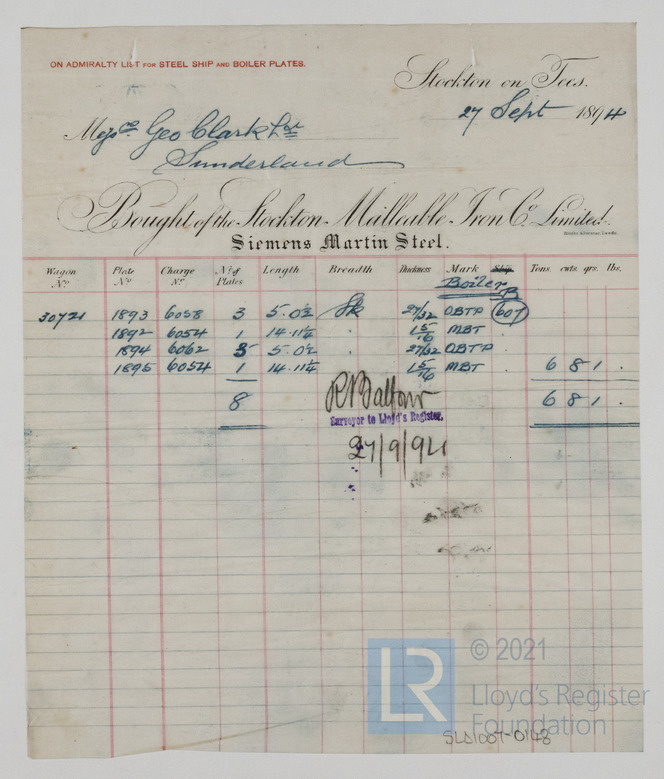 ON ADMIRALTY LIST FOR STEEL SHIP AND BOILER PLATES.
Stockton on Tees.
27 Sept 1894
Messrs Geo Clark Ltd
Sunderland
Bought of the Stockton Malleable Iron Co. Limited.
Siemens Martin Steel.
Wagon No. Plate No. Charge No. No. of Plates Length Breadth Thickness Mark Ship Tons cwts. qrs. lbs.
Boiler
30721 1893 6058 3 5.0½ Sk 27/32 OBTP B 607
1892 6054 1 14.11¼ . 15/16 MBT .
1894 6062 3 5.0½ . 27/32 OBTP .
1895 6054 1 14.11¼ . 15/16 MBT . 6 8 1 .
8 6 8 1 .
R Balfour
Surveyor to Lloyd's Register.
27/9/94
LR © 2021
Lloyd's Register
Foundation
SLD1007-0148